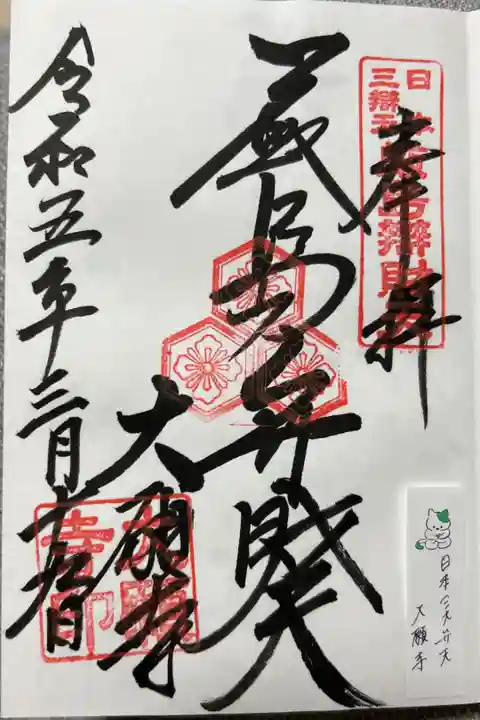 奉拝
日本三辯天
嚴島辯財天
厳島弁財天
大願寺
令和五年三月十九日
日本三大弁天
大願寺